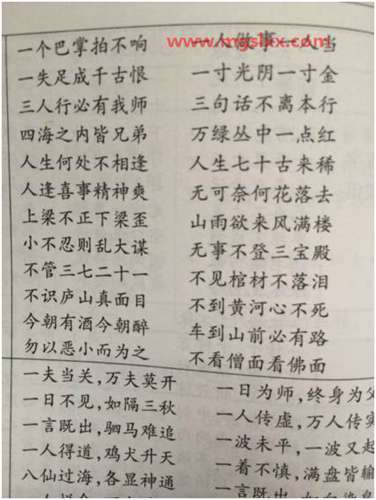 一个巴掌拍不响
一失足成千古恨
三人行必有我师
四海之内皆兄弟
人生何处不相逢
人逢喜事精神爽
上梁不正下梁歪
小不忍则乱大谋
不管三七二十一
不识庐山真面目
今朝有酒今朝醉
勿以恶小而为之
www.mgslxx.com
一人做事一人当
一寸光阴一寸金
三句话不离本行
万绿丛中一点红
人生七十古来稀
无可奈何花落去
山雨欲来风满楼
无事不登三宝殿
不见棺材不落泪
不到黄河心不死
车到山前必有路
不看僧面看佛面
一夫当关，万夫莫开
一日不见，如隔三秋
一言既出，驷马难追
一人得道，鸡犬升天
八仙过海，各显神通
一日为师，终身为父
一人传虚，万人传实
一波未平，一波又起
一着不慎，满盘皆输